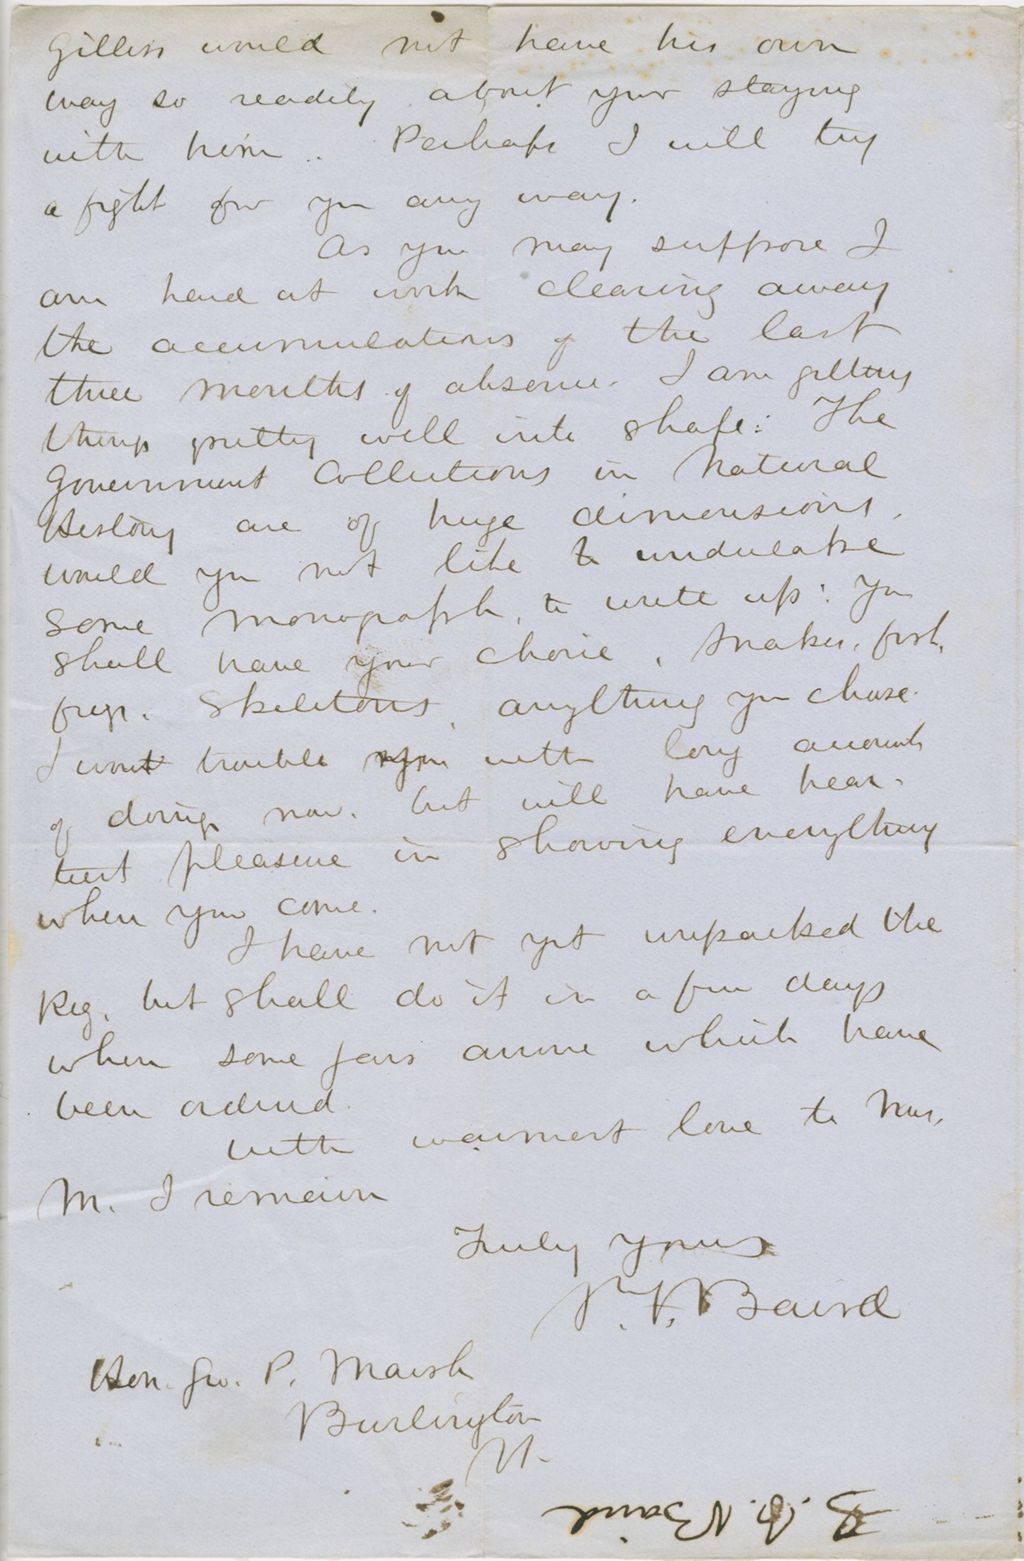 Gilliss would not have his own
way so readily about your staying
with him. Perhaps I will try
a fight for you any way.
As you may suppose I
am hard at work clearing away
the accumulations of the last
three months of absence. I am getting
things pretty well into shape: The
Government Collections in Natural
History are of huge dimensions.
would you not like to undertake
some monograph, to write up: You
shall have your choice, snakes, fish,
frogs. Skeletons, anything you chose.
I wont trouble you with long accounts
of doings now. but will have hear-
tiest pleasure in showing everything
when you come.
I have not yet unpacked the
Keg, but shall do it in a few days
when some jars arrive which have
been ordered.
with warmest love to Mrs.
M. I remain
Truly yours
S. F. Baird
Hon. Geo. P. Marsh
Burlington
Vt.
S. F. Baird